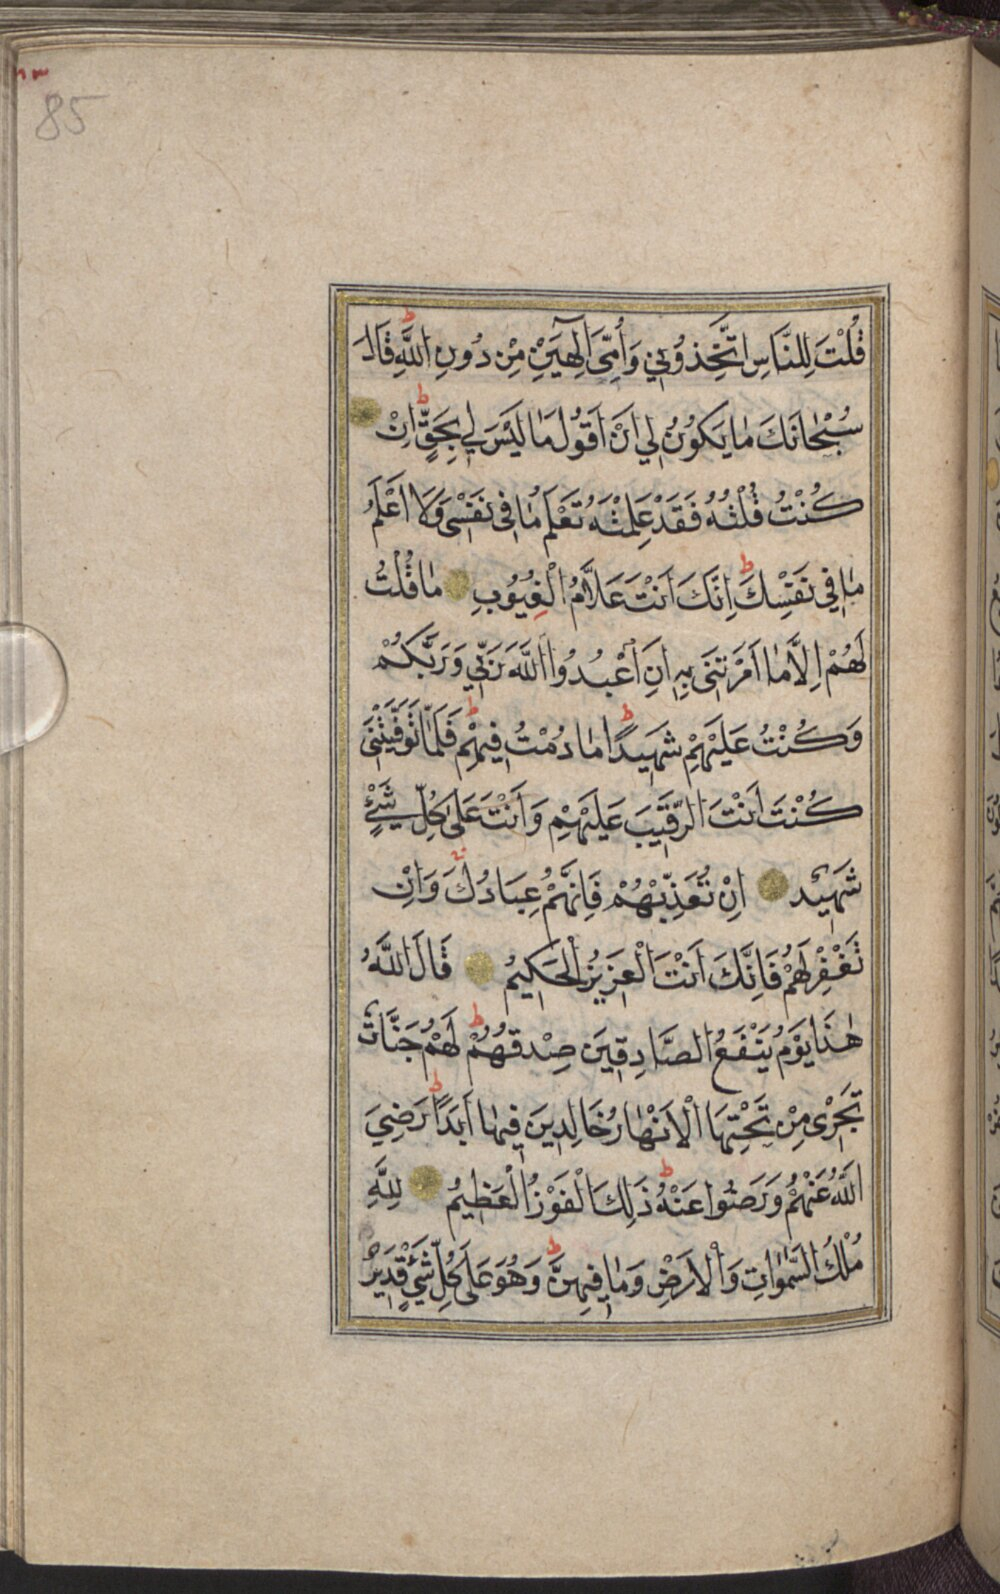 85
قُلْتَ لِلنَّاسِ اتَّخِذُونِي وَأُمِّىَ اِلٰهَيْنِ مِنْ دُونِ اللَّهِ ط قَالَ
سُبْحَانَكَ مَا يَكُونُ لِي اَنْ اَقُولَ مَا لَيْسَ لِي بِحَقٍّ ط اِنْ
كُنْتُ قُلْتُهُ فَقَدْ عَلِمْتَهُ تَعْلَمُ مَا فِى نَفْسِى وَلَا اَعْلَمُ
مَا فِي نَفْسِكَ ط اِنَّكَ اَنْتَ عَلَّامُ الْغُيُوبِ مَا قُلْتُ
لَهُمْ اِلَّا مَا اَمَرْتَنِى بِهِ اَنِ اعْبُدُوا اللَّهَ رَبِّي وَرَبَّكُمْ
وَكُنْتُ عَلَيْهِمْ شَهِيدًا ط مَا دُمْتُ فِيهِمْ ط فَلَمَّا تَوَفَّيْتَنِى
كُنْتَ اَنْتَ الرَّقِيبَ عَلَيْهِمْ وَاَنْتَ عَلَى كُلِّ شَىْءٍ
شَهِيدٌ اِنْ تُعَذِّبْهُمْ فَاِنَّهُمْ عِبَادُكَ وَاِنْ
تَغْفِرْ لَهُمْ فَاِنَّكَ اَنْتَ الْعَزِيزُ الْحَكِيمُ قَالَ اللَّهُ
هٰذَا يَوْمُ يَنْفَعُ الصَّادِقِينَ صِدْقُهُمْ ط لَهُمْ جَنَّاتٌ
تَجْرِى مِنْ تَحْتِهَا الْاَنْهَارُ خَالِدِينَ فِيهَا اَبَدًا ط رَضِيَ
اللَّهُ عَنْهُمْ وَرَضُوا عَنْهُ ط ذَلِكَ الْفَوْزُ الْعَظِيمُ لِلَّهِ
مُلْكُ السَّمٰوَاتِ وَالْاَرْضِ وَمَا فِيهِنَّ ط وَهُوَ عَلَى كُلِّ شَىْءٍ قَدِيرٌ